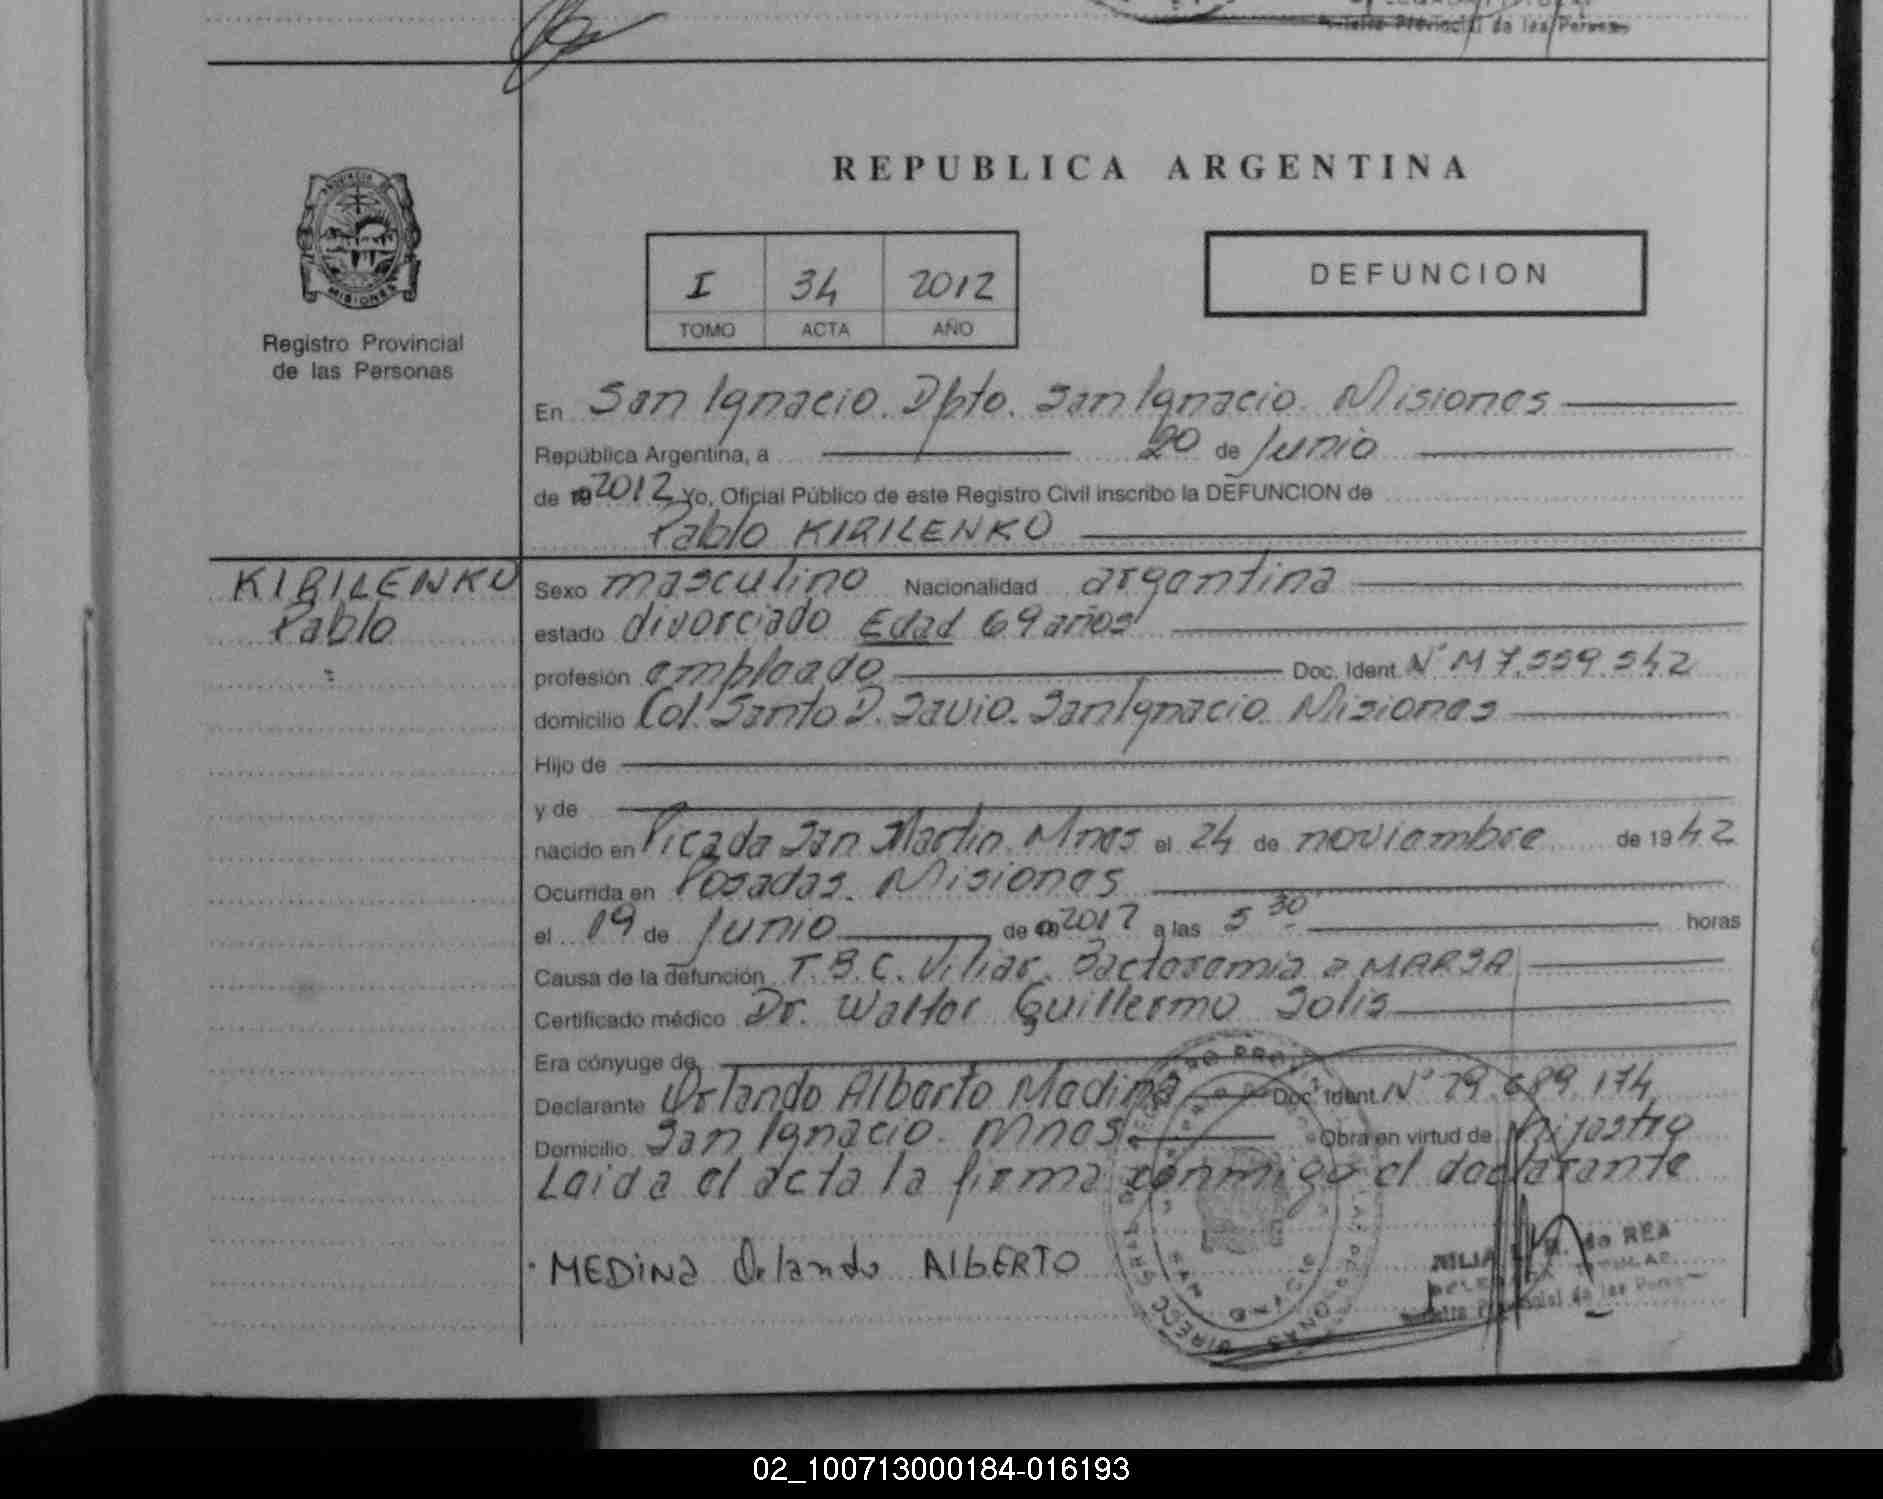 Registro Provincial de las Personas
REPUBLICA ARGENTINA
PROVINCIA DE
MISIONES
Registro Provincial
de las Personas
I 34 2012
TOMO ACTA AÑO
DEFUNCION
En San Ignacio. Dpto. San Ignacio. Misiones
República Argentina, a 20 de Junio
de 19 2012 Yo, Oficial Público de este Registro Civil inscribo la DEFUNCION de
Pablo KIRILENKO
KIRILENKO
Pablo
Sexo masculino Nacionalidad argentina
estado divorciado Edad 69 años
profesión empleado Doc. Ident. Nº M 7.559.542
domicilio Col. Santo D. Savio. San Ignacio Misiones
Hijo de
y de
nacido en Picada San Martin. Mnes el 24 de noviembre de 1942
Ocurrida en Posadas. Misiones
el 19 de Junio de 2012 a las 5 30 horas
Causa de la defunción T.B.C. Miliar. Bacteremia a MARSA
Certificado médico Dr. Walter Guillermo Solis
Era cónyuge de
Declarante Orlando Alberto Medina Doc. Ident. Nº 29.689.174
Domicilio San Ignacio. Mnes. Obra en virtud de hijastro
Leida el acta la firma conmigo el declarante
MEDINA Orlando ALBERTO
de REA
02_100713000184-016193